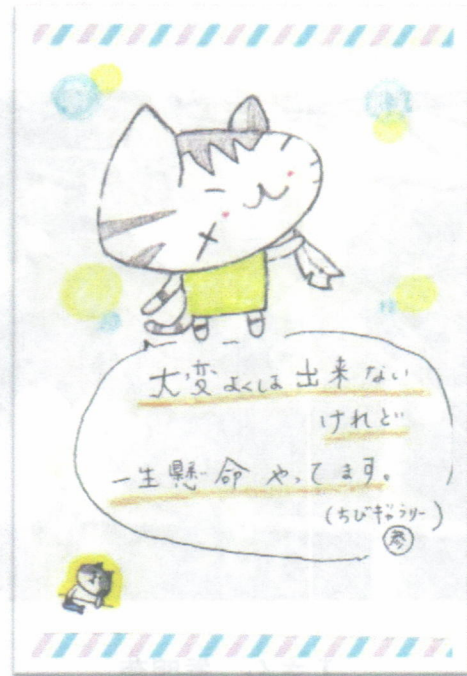 大変よくは出来ない
けれど
一生懸命やってます。
(ちびギャラリー)
参